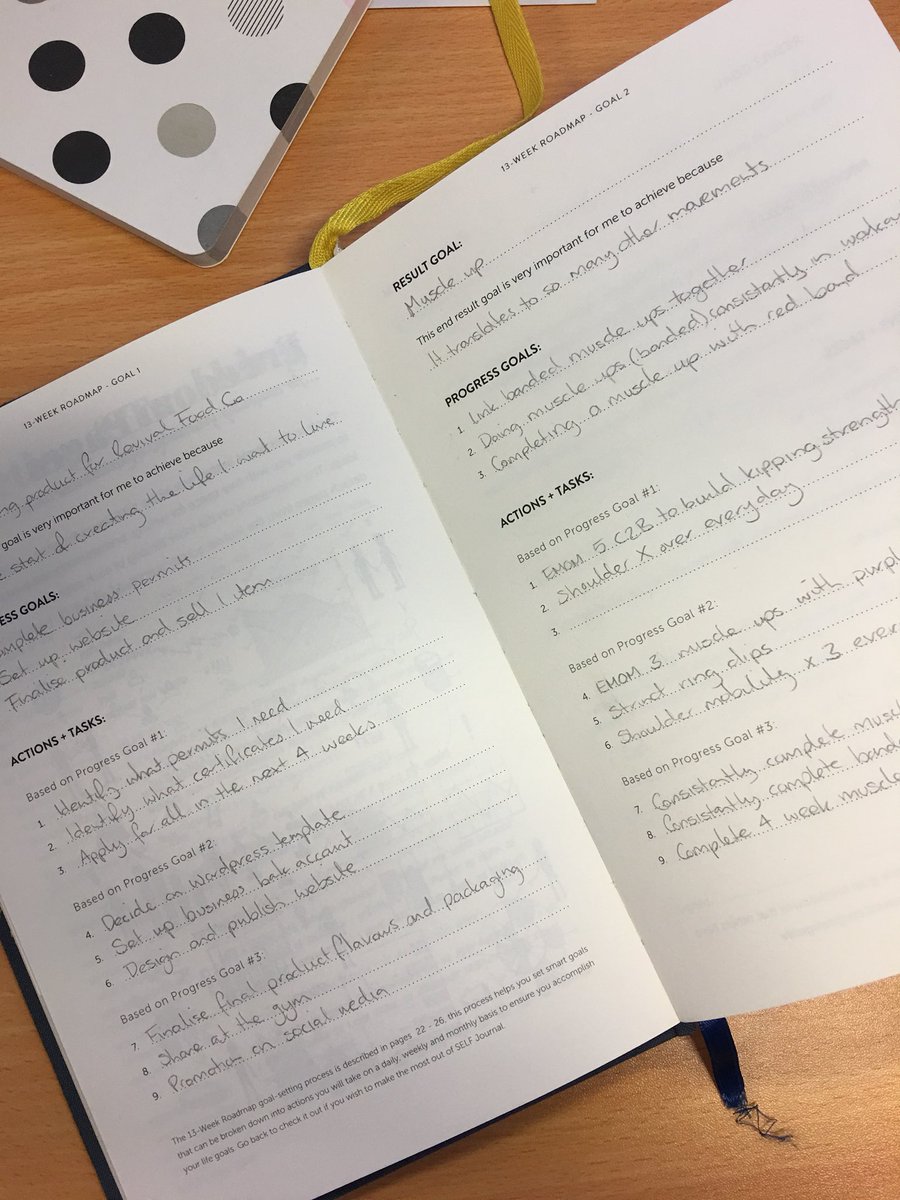 13-WEEK ROADMAP - GOAL 1
product for Revival Food Co
goal is very important for me to achieve because
start of creating the life I want to live
GOALS:
business permits
Set up website
Finalise product and sell 1 item
ACTIONS + TASKS:
Based on Progress Goal #1:
1. Identify what permits I need
2. Identify what certificates I need
3. Apply for all in the next 4 weeks
Based on Progress Goal #2:
4. Decide on Wordpress template
5. Set up business bank account
6. Design and publish website
Based on Progress Goal #3:
7. Finalise final product flavours and packaging
8. Share at the gym
9. Promotion on social media
The 13-Week Roadmap goal-setting process is described in pages 22 - 26, this process helps you set smart goals
that can be broken down into actions you will take on a daily, weekly and monthly basis to ensure you accomplish
your life goals. Go back to check it out if you wish to make the most out of SELF Journal.
13-WEEK ROADMAP - GOAL 2
RESULT GOAL:
Muscle up
This end result goal is very important for me to achieve because
It translates to so many other movements
PROGRESS GOALS:
1. Link banded muscle ups together
2. Doing muscle ups (banded) consistently in
3. Completing a muscle up with red band
ACTIONS + TASKS:
Based on Progress Goal #1:
1. EMOM 5 C2B to build kipping strength
2. Shoulder X over everyday
3.
Based on Progress Goal #2:
4. EMOM 3 muscle ups with
5. Strict ring dips
6. Shoulder mobility x 3
Based on Progress Goal #3:
7. Consistently complete
8. Consistently complete
9. Complete 4 week